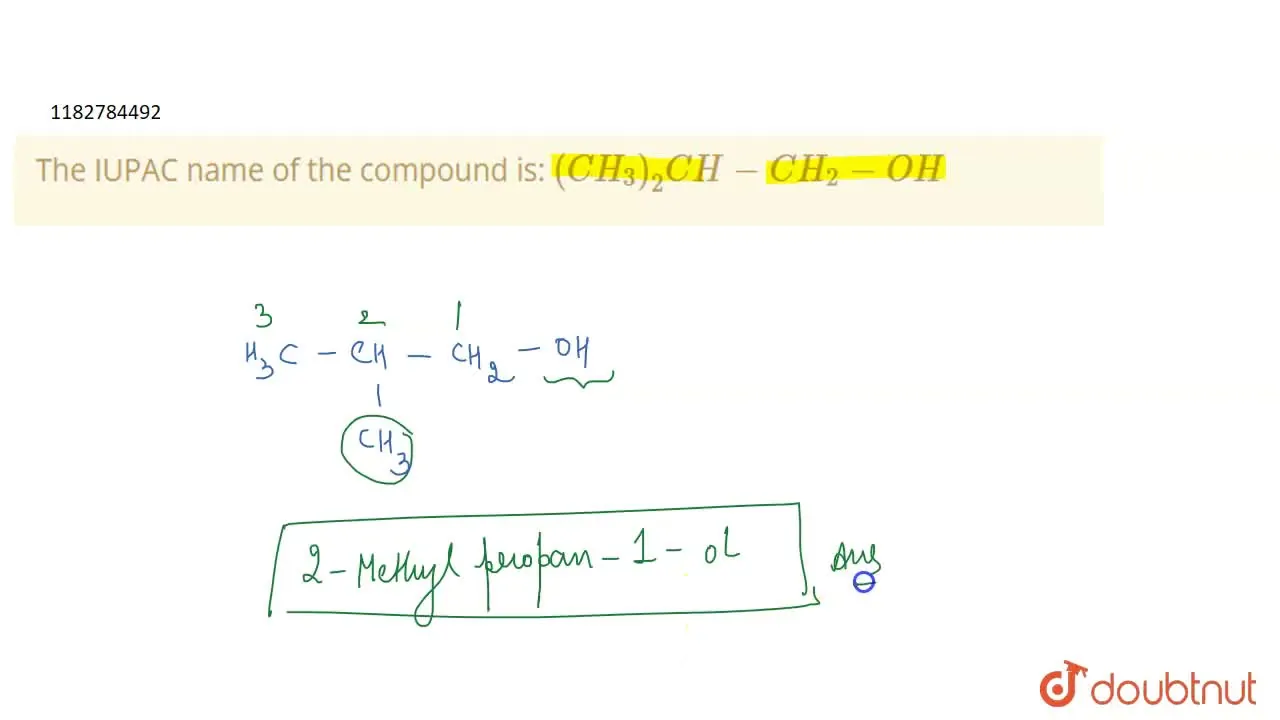 1182784492
The IUPAC name of the compound is: (CH₃)₂CH − CH₂ − OH
3 2 1
H₃C − CH − CH₂ − OH
|
CH₃
2-Methyl propan-1-ol Ans
doubtnut